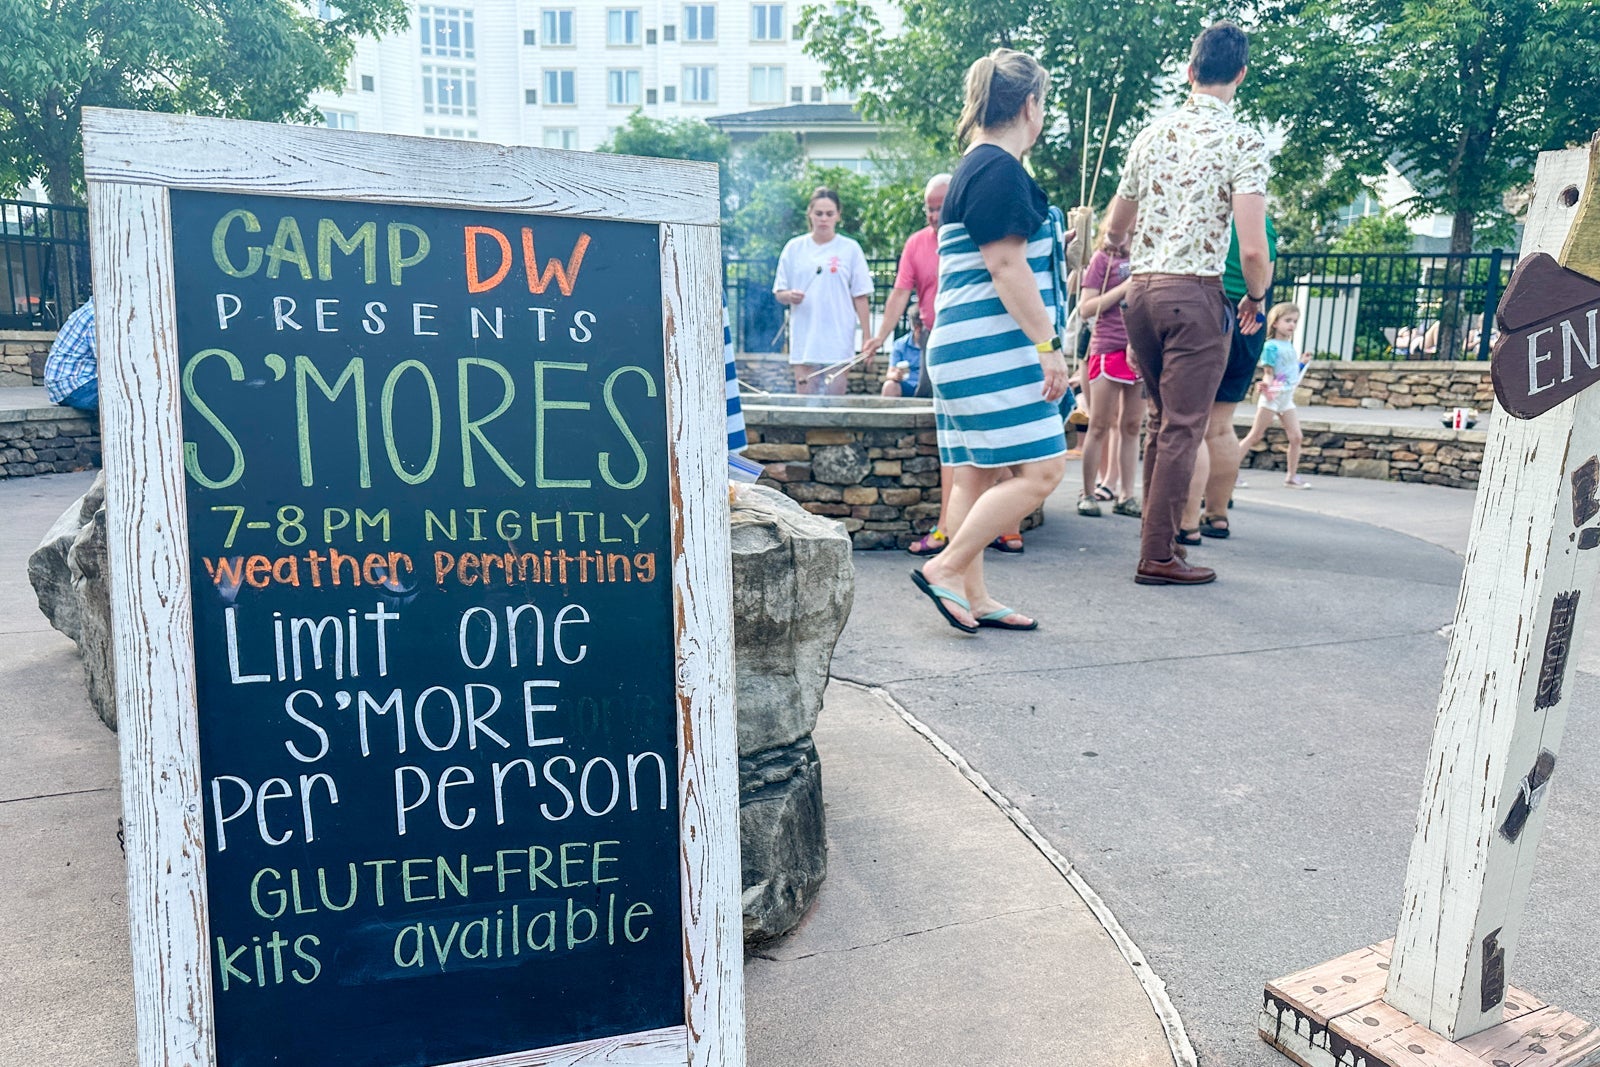 CAMP DW
PRESENTS
S'MORES
7-8 PM NIGHTLY
weather permitting
Limit one
S'MORE
per person
GLUTEN-FREE
kits available
EN